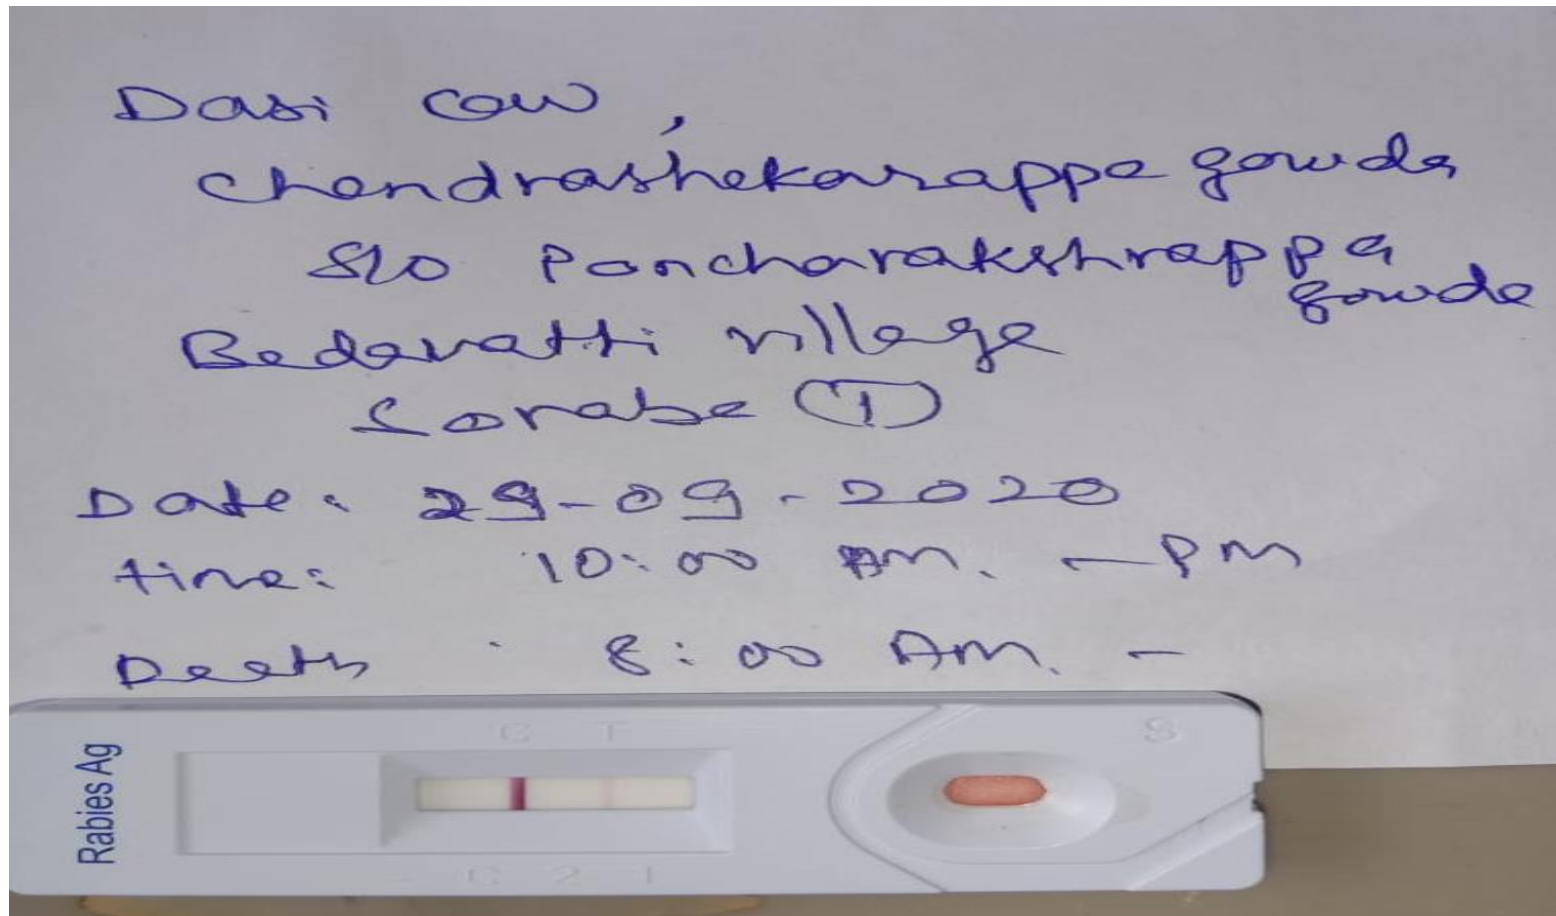 Dasi cow,
Chandrashekarappa gowda
S/o Pancharakshrappa
gowda
Bedavatti village
Soraba (T)
Date: 29-09-2020
time: 10:00 AM. - PM
Death 8:00 AM. -
Rabies Ag
C T
S
C 2 1